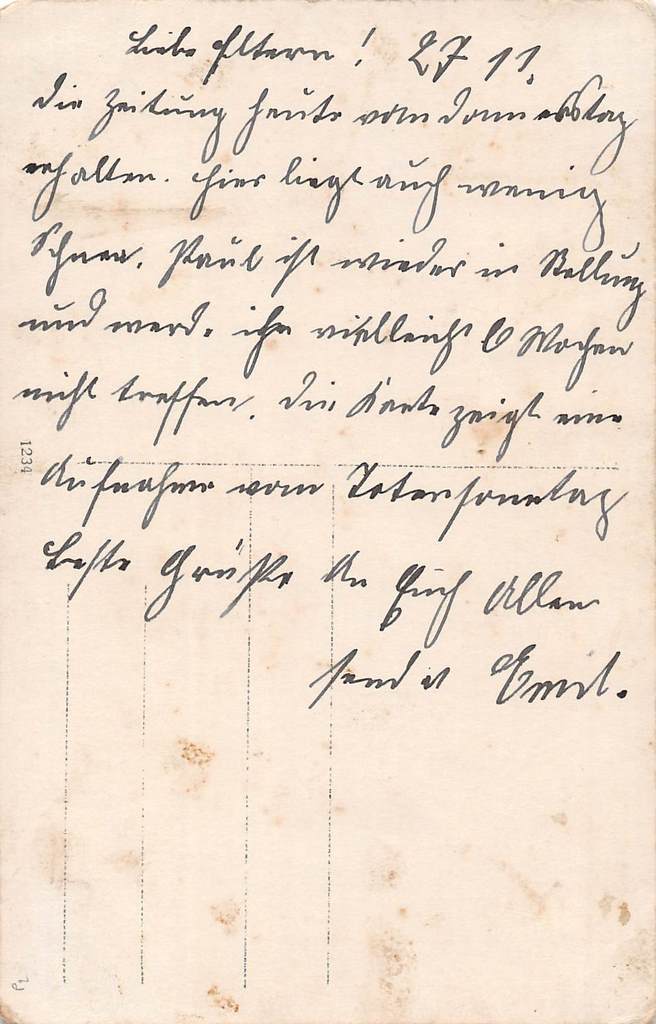 Liebe Eltern! 27 11.
Die Zeitung heute vom Donnerstag
erhalten. Hier liegt auch wenig
Schnee. Paul ist wieder in Stellung
und werde ihn vielleicht 6 Wochen
nicht treffen. Die Karte zeigt eine
Aufnahme vom Totensonntag
Beste Grüße an Euch Allen
sendet Emil.
1234